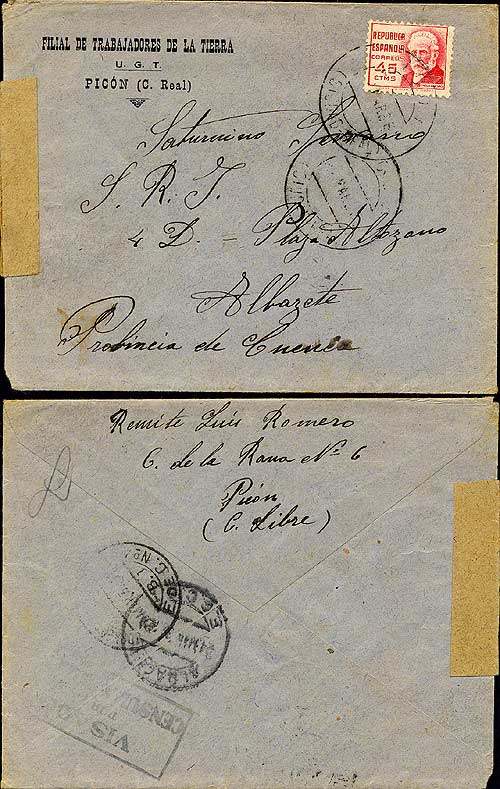 FILIAL DE TRABAJADORES DE LA TIERRA
U. G. T.
PICÓN (C. Real)
REPUBLICA
ESPAÑOLA
CORREOS
45
CTMS
Saturnino Serrano
S. R. I.
4 D. - Plaza Altozano
Albazete
Provincia de Cuenca
Remite Luis Romero
C. de la Rana Nº 6
Picón
(C. Libre)
ALBACE
VIS
POR
CENSURA